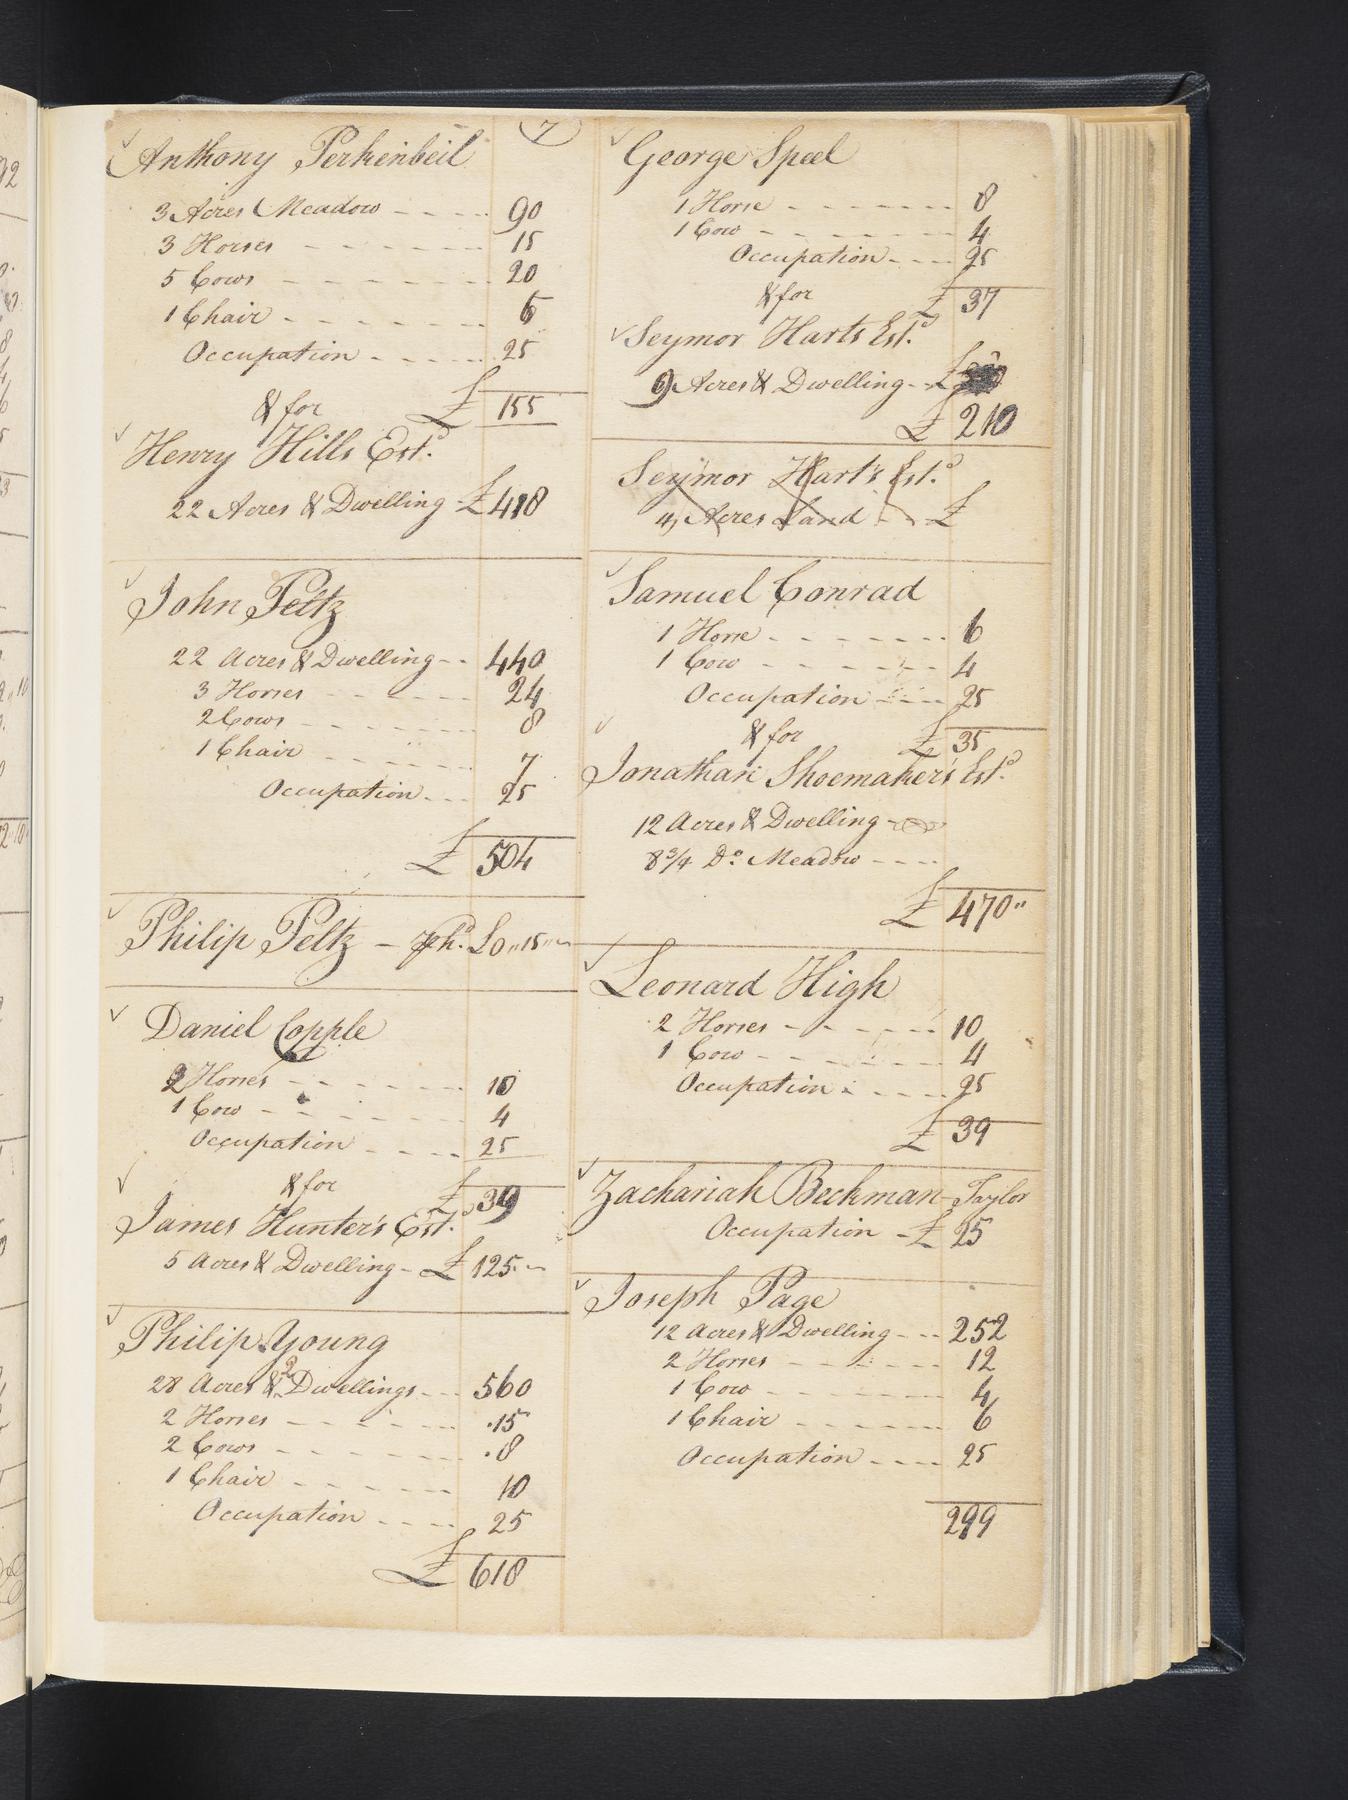 7
Anthony Perkenbeil
3 Acres Meadow 90
3 Horses 15
5 Cows 20
1 Chair 5
Occupation 25
& for £ 155
Henry Hills Estd.
22 Acres & Dwelling £ 418
John Peltz
22 Acres & Dwelling 440
3 Horses 24
2 Cows 8
1 Chair 7
Occupation 25
£ 504
Philip Peltz £0,,15,,
Daniel Copple
2 Horses 10
1 Cow 4
Occupation 25
& for £ 39
James Hunter's Estd.
5 Acres & Dwelling £ 125
Philip Young
28 Acres & 2 Dwellings 560
2 Horses 15
2 Cows 8
1 Chair 10
Occupation 25
£ 618
George Speel
1 Horse 8
1 Cow 4
Occupation 25
& for £ 37
Seymor Harts Estd.
9 Acres & Dwelling £
£ 210
Seymor Hart's Estd.
4 Acres Land £
Samuel Conrad
1 Horse 6
1 Cow 4
Occupation 25
& for £ 35
Jonathan Shoemaker's Estd.
12 Acres & Dwelling
8 3/4 Do. Meadow
£ 470"
Leonard High
2 Horses 10
1 Cow 4
Occupation 25
£ 39
Zachariah Beckman Taylor
Occupation £ 25
Joseph Page
12 Acres & Dwelling 252
2 Horses 12
1 Cow 4
1 Chair 6
Occupation 25
299